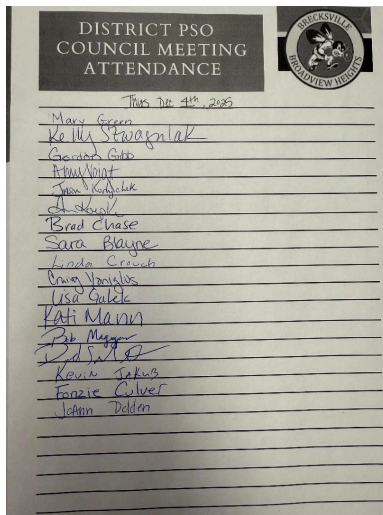 DISTRICT PSO
COUNCIL MEETING
ATTENDANCE
BRECKSVILLE
BROADVIEW HEIGHTS
Thurs Dec 4th, 2025
Mary Green
Kelly Stwagniak
Gordon Gibb
Amy Voigt
Jason
Brad Chase
Sara Blayne
Linda Crouch
Craig Yaniglos
Lisa Galek
Kati Mann
Bob
Kevin Jakub
Fonzie Culver
JoAnn Dolden